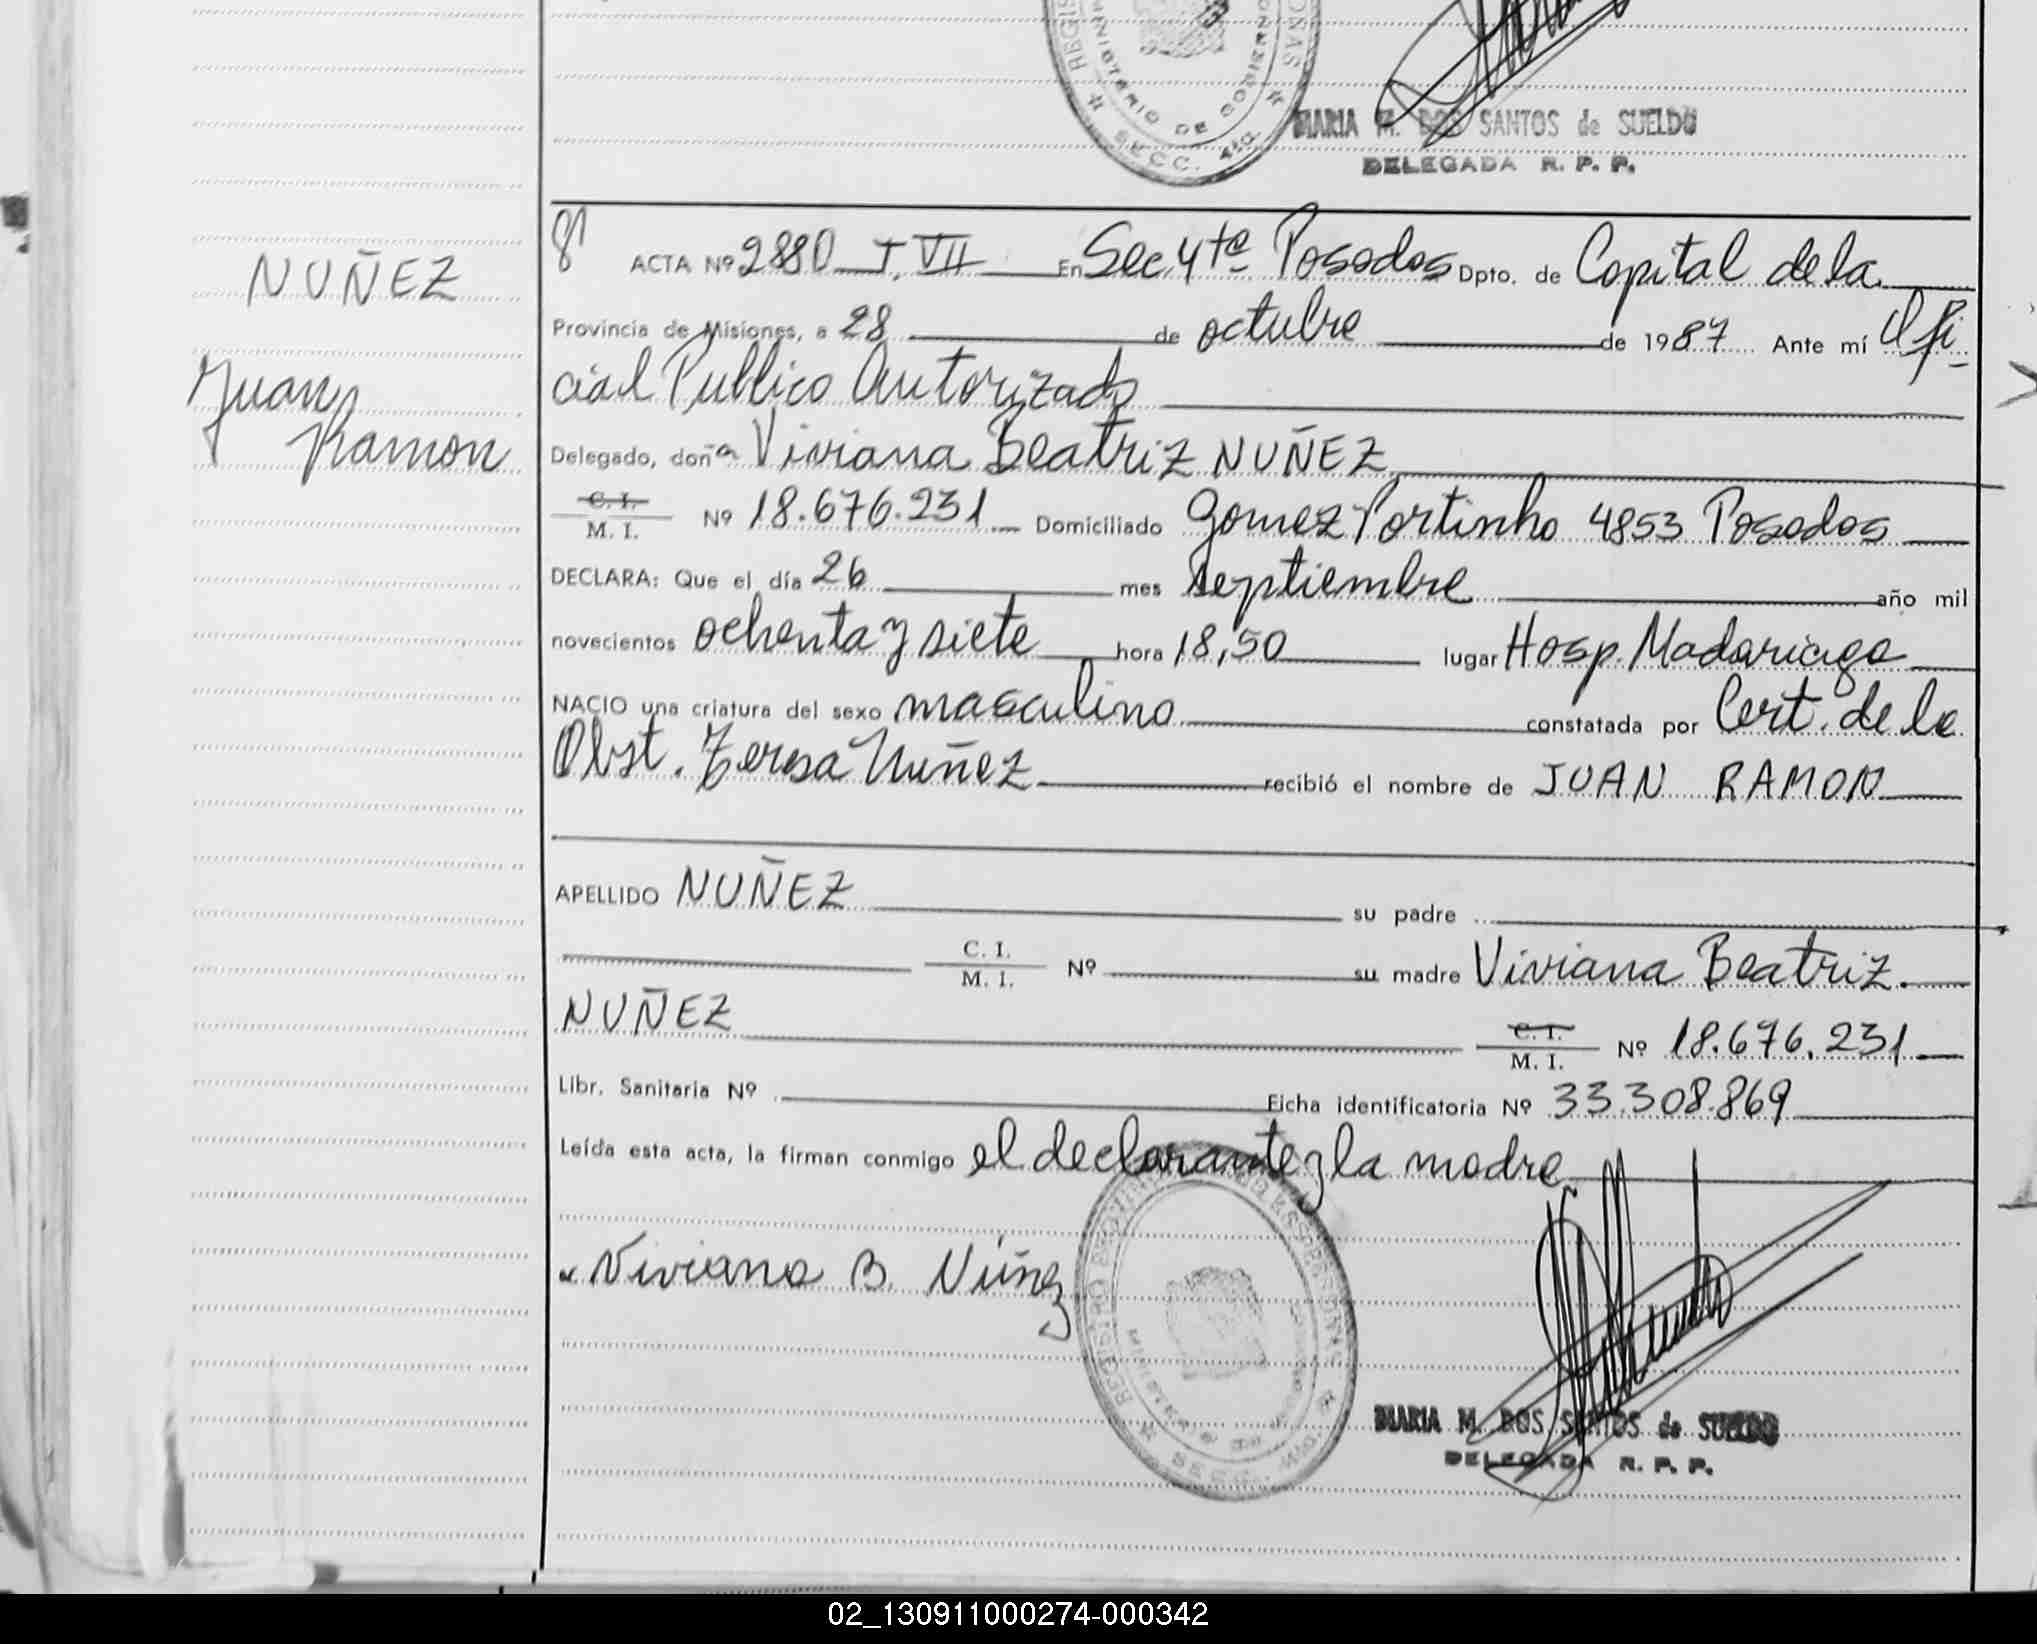 REGIS
ONAS
MINISTERIO DE GOBIERNO
SECC. 4to.
MARIA M. DOS SANTOS de SUELDO
DELEGADA R. P. P.
NUÑEZ
Juan
Ramon
ACTA Nº 2880 T. VII En Sec. 4ta Posadas Dpto. de Capital de la
Provincia de Misiones, a 28 de octubre de 1987 Ante mí Ofi-
cial Publico Autorizado
Delegado, doña Viviana Beatriz NUÑEZ
C. I.
M. I. Nº 18.676.231 Domiciliado Gomez Portinho 4853 Posadas
DECLARA: Que el día 26 mes septiembre año mil
novecientos ochenta y siete hora 18,50 lugar Hosp. Madariaga
NACIO una criatura del sexo masculino constatada por Cert. de la
Obst. Teresa Nuñez recibió el nombre de JUAN RAMON
APELLIDO NUÑEZ su padre
C. I.
M. I. Nº su madre Viviana Beatriz
NUÑEZ C. I.
M. I. Nº 18.676.231
Libr. Sanitaria Nº Ficha identificatoria Nº 33.308.869
Leída esta acta, la firman conmigo el declarante y la madre
Viviana B. Núñez
MARIA M. DOS SANTOS de SUELDO
DELEGADA R. P. P.
02_130911000274-000342